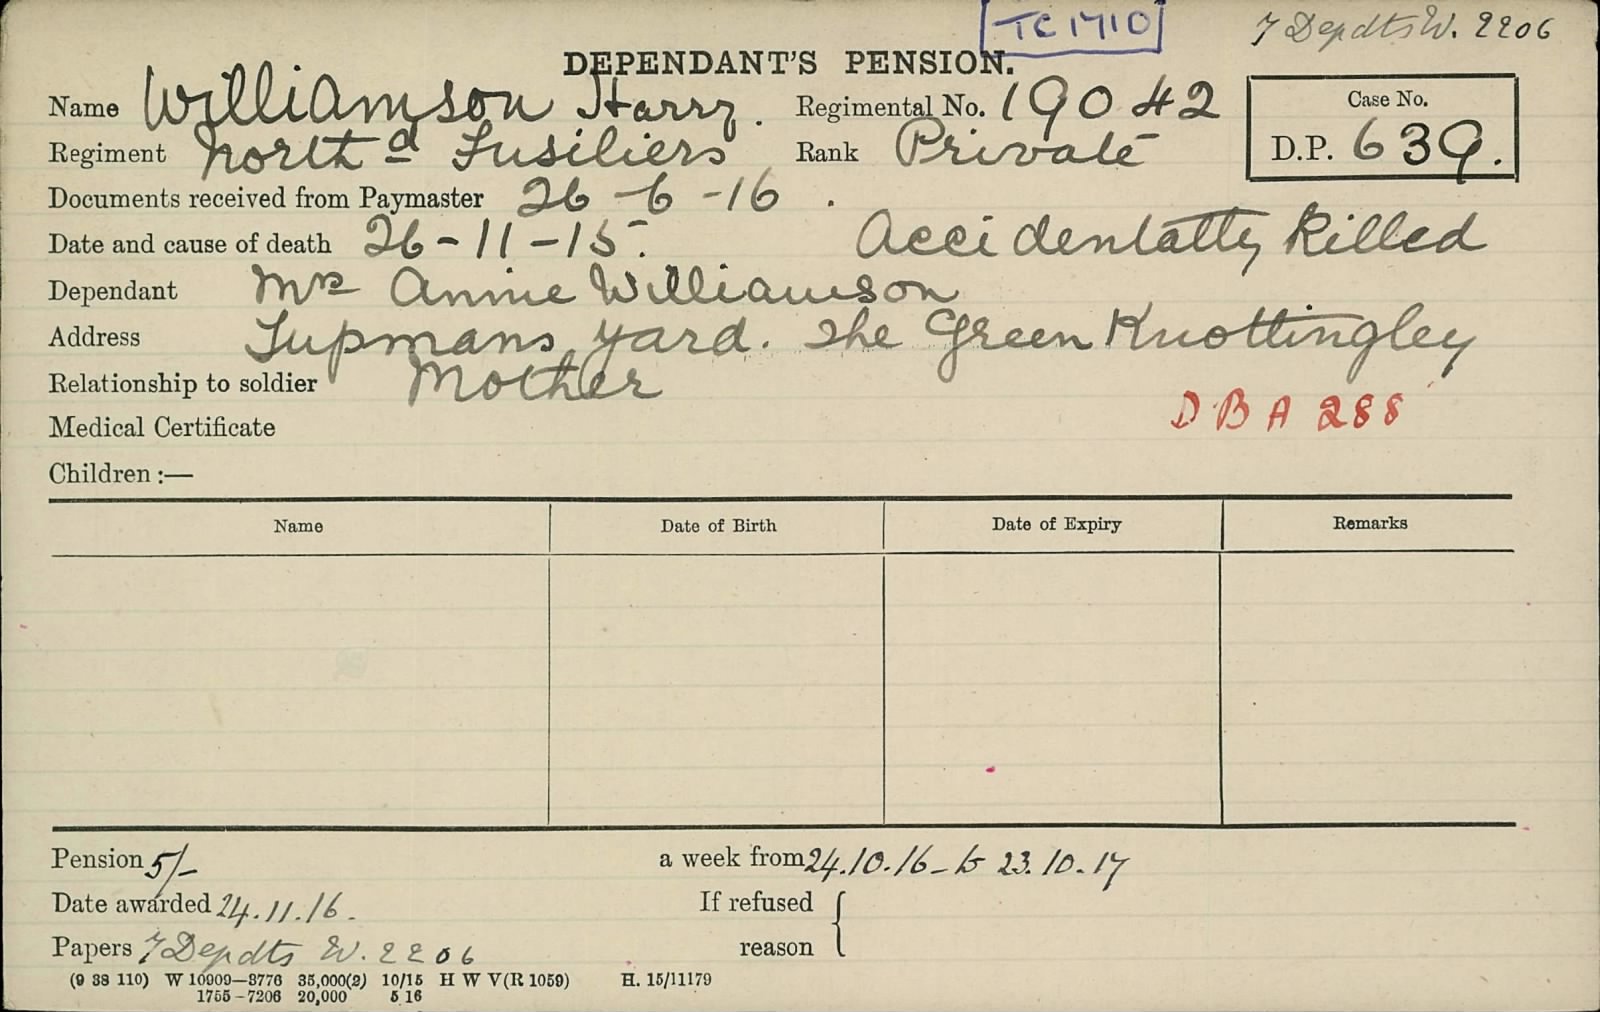 TC 1710
7 Depdts W. 2206
DEPENDANT'S PENSION.
Name Williamson Harry. Regimental No. 19042
Case No.
D.P. 639.
Regiment North'd Fusiliers Rank Private
Documents received from Paymaster 26-6-16.
Date and cause of death 26-11-15. Accidentally Killed
Dependant Mrs Annie Williamson
Address Tupmans yard. The Green Knottingley
Relationship to soldier Mother
DBA 288
Medical Certificate
Children :—
Name Date of Birth Date of Expiry Remarks
Pension 5/- a week from 24.10.16 - to 23.10.17
Date awarded 24.11.16. If refused
Papers 7 Depdts W. 2206 reason
(9 38 110) W 10909—3776 35,000(2) 10/15 H W V(R 1059) H. 15/11179
1755-7206 20,000 5 16